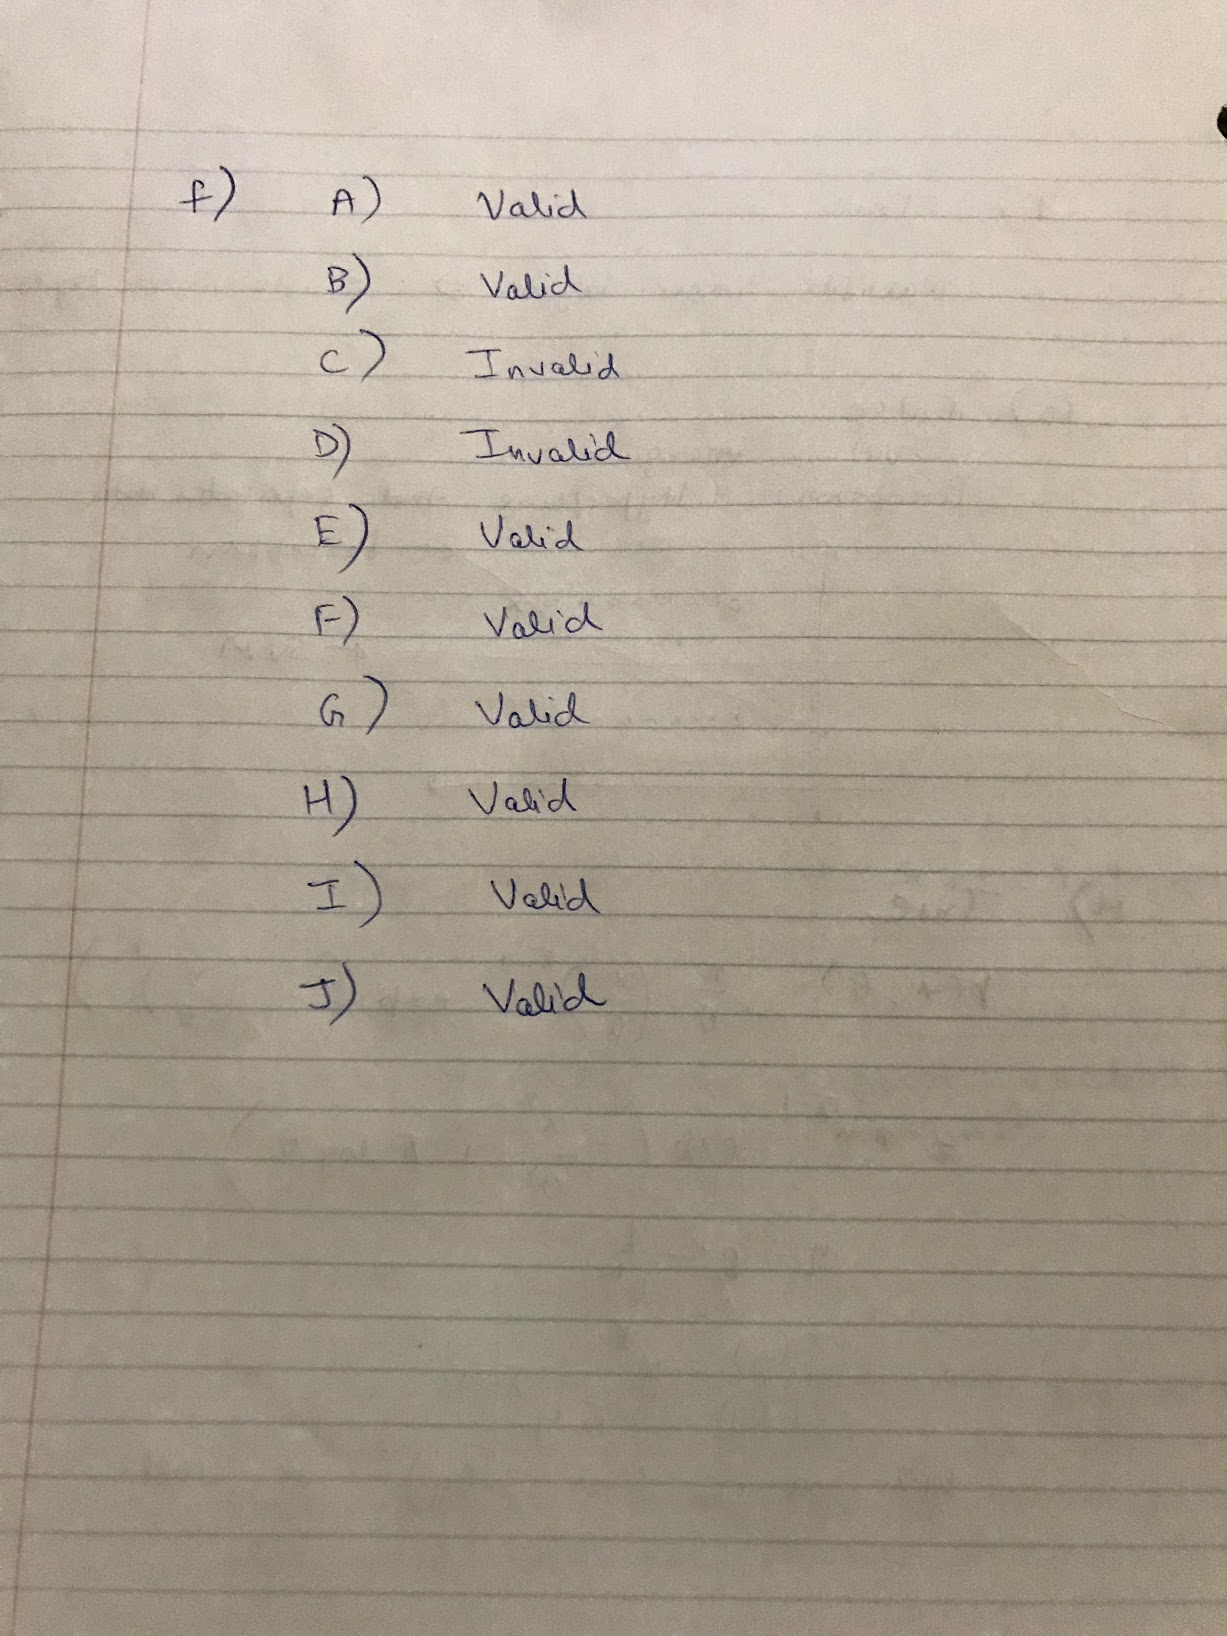 f) A) Valid
B) Valid
C) Invalid
D) Invalid
E) Valid
F) Valid
G) Valid
H) Valid
I) Valid
J) Valid